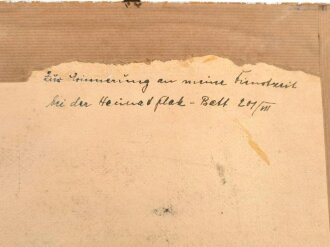 Zur Erinnerung an meine Dienstzeit
bei der Heimat flak - Batt 201/VII